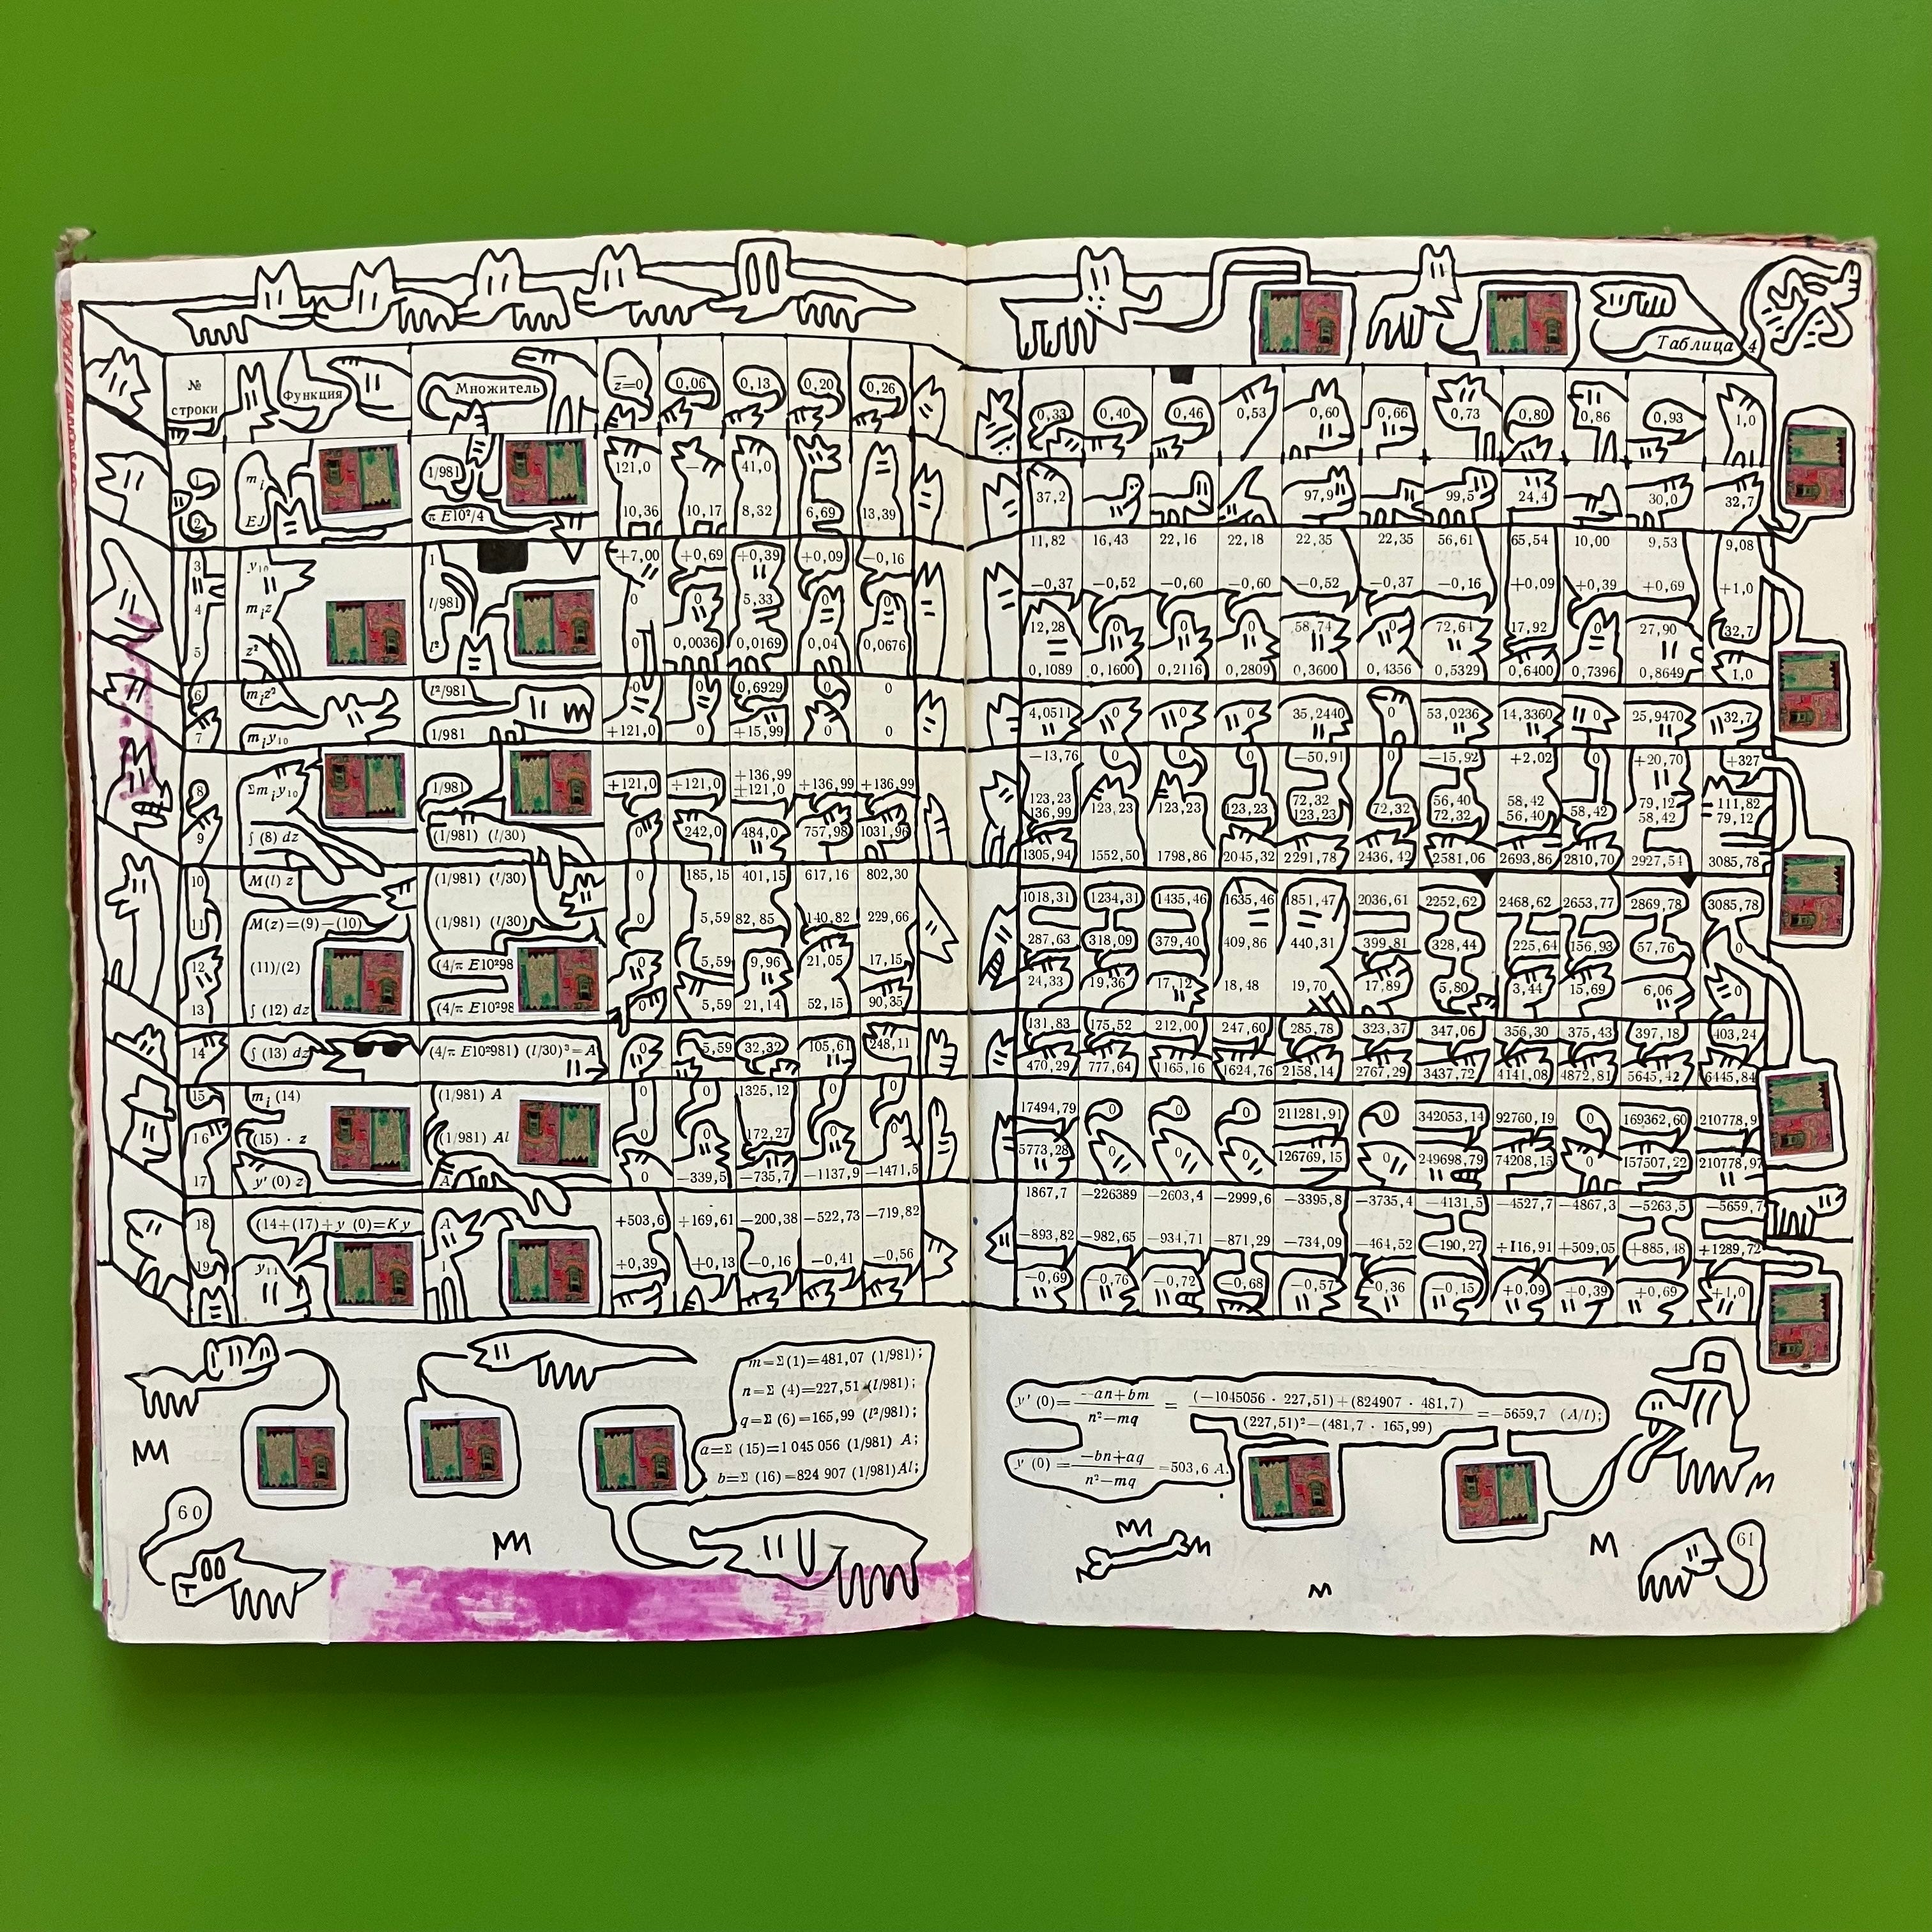 Таблица 4
№ строки Функция Множитель z̅=0 0,06 0,13 0,20 0,26 0,33 0,40 0,46 0,53 0,60 0,66 0,73 0,80 0,86 0,93 1,0
1 mᵢ 1/981 121,0 — 41,0 37,2 97,9 99,5 24,4 30,0 32,7
2 EJ π E10²/4 10,36 10,17 8,32 6,69 13,39 11,82 16,43 22,16 22,18 22,35 22,35 56,61 65,54 10,00 9,53 9,08
3 y₁₀ 1 +7,00 +0,69 +0,39 +0,09 —0,16 —0,37 —0,52 —0,60 —0,60 —0,52 —0,37 —0,16 +0,09 +0,39 +0,69 +1,0
4 mᵢz l/981 0 0 5,33 0 0 12,28 0 0 0 58,74 0 72,61 17,92 0 27,90 32,7
5 z² l² 0 0,0036 0,0169 0,04 0,0676 0,1089 0,1600 0,2116 0,2809 0,3600 0,4356 0,5329 0,6400 0,7396 0,8649 1,0
6 mᵢz² l²/981 0 0 0,6929 0 0 4,0511 0 0 0 35,2440 0 53,0236 14,3360 0 25,9470 32,7
7 mᵢy₁₀ 1/981 +121,0 0 +15,99 0 0 —13,76 0 0 0 —50,91 0 —15,92 +2,02 0 +20,70 +327
8 Σmᵢy₁₀ 1/981 +121,0 +121,0 +136,99 +136,99 +136,99 123,23 123,23 123,23 123,23 72,32 72,32 56,40 58,42 58,42 79,12 111,82
+121,0 136,99 123,23 72,32 56,40 58,42 79,12
9 ∫ (8) dz (1/981) (l/30) 0 242,0 484,0 757,98 1031,96 1305,94 1552,50 1798,86 2045,32 2291,78 2436,42 2581,06 2693,86 2810,70 2927,54 3085,78
10 M(l) z (1/981) (l/30) 0 185,15 401,15 617,16 802,30 1018,31 1234,31 1435,46 1635,46 1851,47 2036,61 2252,62 2468,62 2653,77 2869,78 3085,78
11 M(z)=(9)—(10) (1/981) (l/30) 0 5,59 82,85 140,82 229,66 287,63 318,09 379,40 409,86 440,31 399,81 328,44 225,64 156,93 57,76 0
12 (11)/(2) (4/π E10²98 0 5,59 9,96 21,05 17,15 24,33 19,36 17,12 18,48 19,70 17,89 5,80 3,44 15,69 6,06 0
13 ∫ (12) dz (4/π E10²98 0 5,59 21,14 52,15 90,35 131,83 175,52 212,00 247,60 285,78 323,37 347,06 356,30 375,43 397,18 403,24
14 ∫ (13) dz (4/π E10²981) (l/30)³=A 0 5,59 32,32 105,61 248,11 470,29 777,64 1165,16 1624,76 2158,14 2767,29 3437,72 4141,08 4872,81 5645,42 6445,84
15 mᵢ (14) (1/981) A 0 0 1325,12 0 0 17494,79 0 0 0 211281,91 0 342053,14 92760,19 0 169362,60 210778,9
16 (15) · z (1/981) Al 0 0 172,27 0 0 5773,28 0 0 0 126769,15 0 249698,79 74208,15 0 157507,22 210778,97
17 y′ (0) z A 0 —339,5 —735,7 —1137,9 —1471,5 1867,7 —226389 —2603,4 —2999,6 —3395,8 —3735,4 —4131,5 —4527,7 —4867,3 —5263,5 —5659,7
18 (14+(17)+y (0)=Ky A +503,6 +169,61 —200,38 —522,73 —719,82 —893,82 —982,65 —934,71 —871,29 —734,09 —464,52 —190,27 +116,91 +509,05 +885,48 +1289,72
19 y₁₁ 1 +0,39 +0,13 —0,16 —0,41 —0,56 —0,69 —0,76 —0,72 —0,68 —0,57 —0,36 —0,15 +0,09 +0,39 +0,69 +1,0
m=Σ(1)=481,07 (1/981);
n=Σ (4)=227,51 (l/981);
q=Σ (6)=165,99 (l²/981);
a=Σ (15)=1 045 056 (1/981) A;
b=Σ (16)=824 907 (1/981)Al;
60
y′ (0)= —an+bm / n²—mq = (—1045056 · 227,51)+(824907 · 481,7) / (227,51)²—(481,7 · 165,99) =—5659,7 (A/l);
y (0) = —bn+aq / n²—mq =503,6 A.
61